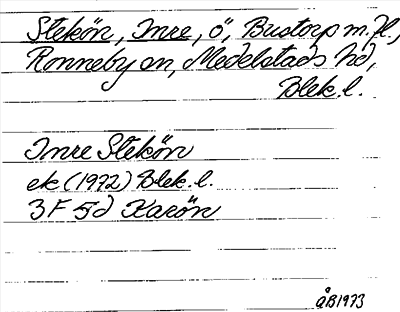 Stekön, Imre, ö, Bustorp m.fl.,
Ronneby sn, Medelstads hd,
Blek.l.
Imre Stekön
ek (1972) Blek.l.
3F 5d Karön
ÅB1973